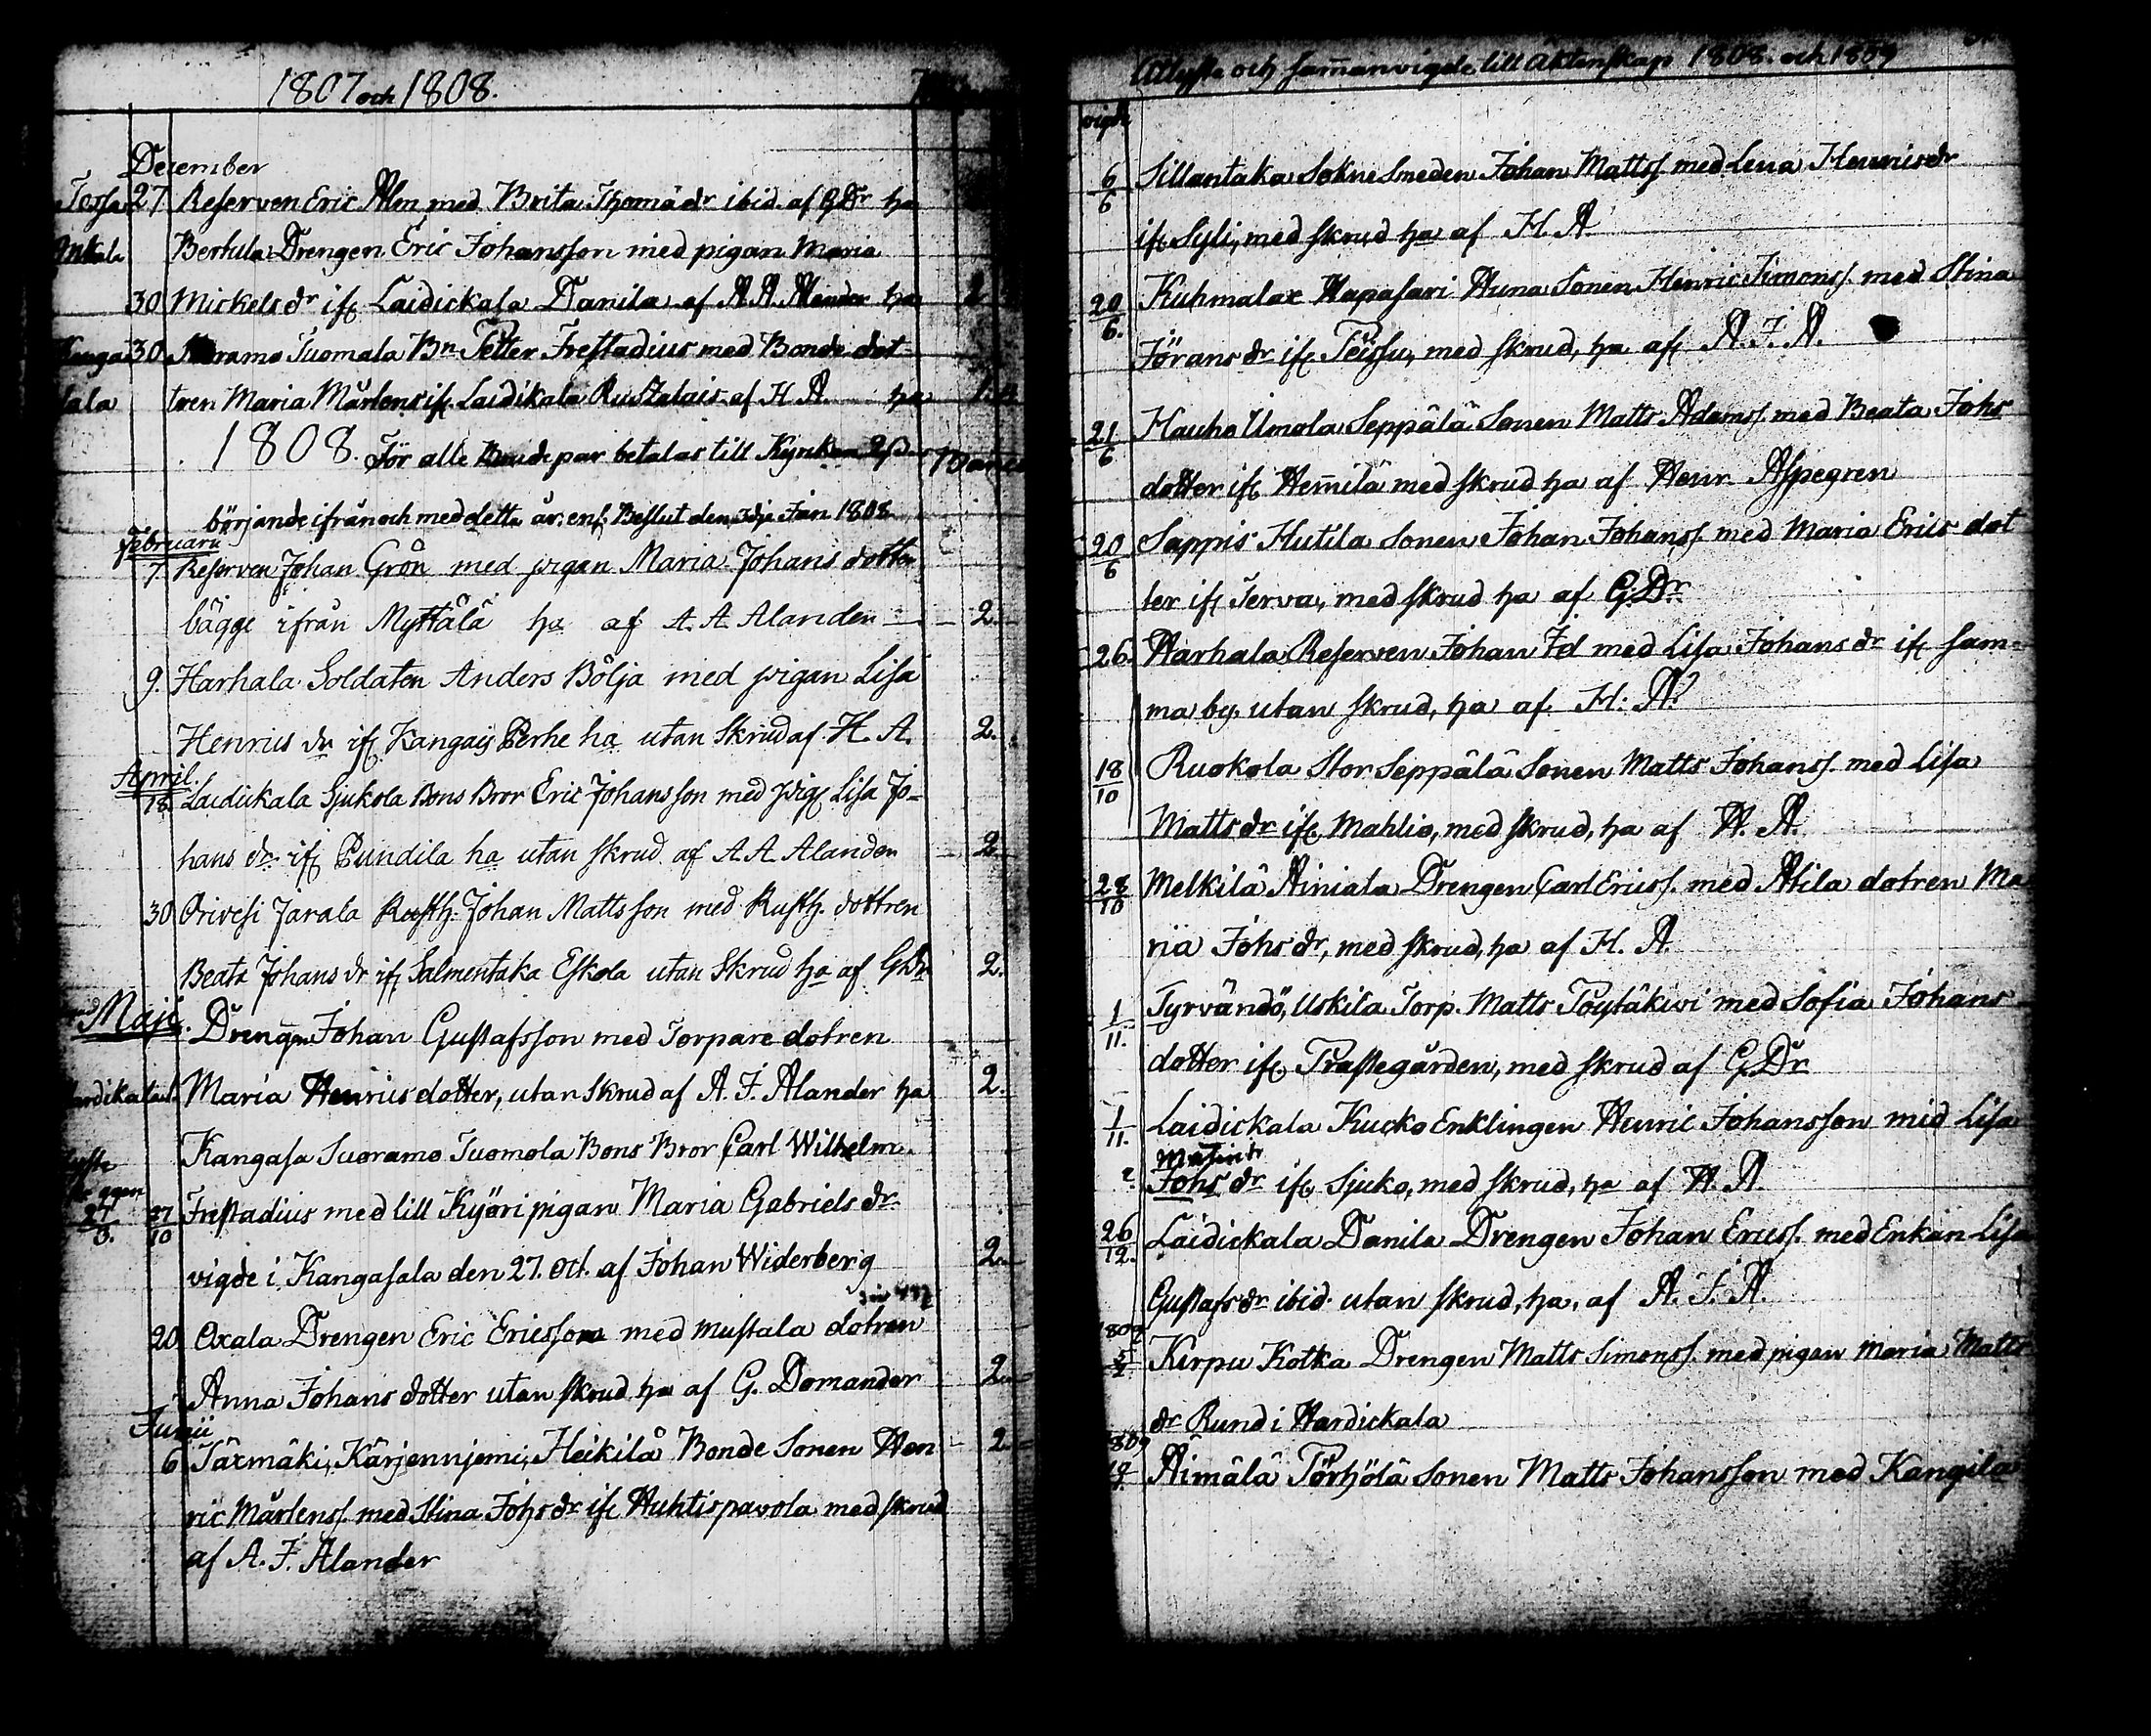 1807 och 1808.
December
27 Reserven Eric Alen med Brita Thomädr ibid. af GDr ha
Bertula Drengen Eric Johansson med pigan Maria
30 Mickelsdr if Laidickala Danila af A A Alander ha 2
30 Tuomala Bn Petter Frestadius med Bonde dot
tren Maria Mårtens if Laidikala Rustalais af H A ha
1808. För alle Brudepar betalas till Kyrkan
börjande ifrån och med detta år, enl. Beslut den 3dje Jan 1808
Februarii
7. Reserven Johan Grön med pigan Maria Johans dotter
bägge ifrån Myttälä ha af A. A. Alanden 2.
9. Harhala Soldaten Anders Bölja med pigan Lisa
Henrics dr if Kangais Perhe ha utan Skrud af H. A. 2.
April.
18. Laidickala Sjukola Bons Bror Eric Johansson med pig Lisa Jo-
hans dr if Pundila ha utan skrud af A A Alanden 2
30 Orivesi Jarala Rusth. Johan Mattsson med Rusth. dottren
Beata Johans dr if Salmentaka Eskola utan Skrud ha af GDr 2.
Maji. Drengen Johan Gustafsson med Torpare dotren
Maria Henrics dotter, utan skrud af A. J. Alander ha 2.
Kangasa Suoramo Tuomola Bons Bror Carl Wilhelm
27/10 Frestadius med lill Kyöri pigan Maria Gabriels dr
vigde i Kangasala den 27. Oct. af Johan Widerberg 2.
20 Oxala Drengen Eric Ericsson med Mustala dotren
Anna Johans dotter utan skrud ha af G. Domander 2.
Junii
6 Täxmäki, Kärjennjemi, Heikilä Bonde Sonen Hen 2.
ric Mårtenss. med Stina Johsdr if Huhtis pavola med skrud
af A. J. Alander
Aflyste och samanvigde till Äktenskap 1808. och 1809
vigde
6/6 Sillantaka Sokne Smeden Johan Mattss. med Lena Henricsdr
if Syli, med skrud ha af H A
20/6. Kuhmalax Hapasari Huna Sonen Henric Simonss. med Stina
Jöransdr if Peissu, med skrud, ha af A. J. A.
21/6 Hauho Umola Seppälä Sonen Matts Adamss. med Beata Johs
dotter if Hemilä med skrud ha af Henr. Aspegren
20/6 Sappis Hutila Sonen Johan Johanss. med Maria Erics dot
ter if Terva, med skrud ha af G.Dr.
26. Harhala Reserven Johan Id med Lisa Johansdr if sam-
ma by, utan skrud, ha af H. A.
18/10 Ruokola Stor Seppälä Sonen Matts Johanss. med Lisa
Mattsdr if Mahlio, med skrud, ha af H. A.
28/10 Melkilä Äiniala Drengen Carl Ericss. med Alila dotren Ma
ria Johs dr, med skrud, ha af H. A.
1/11. Tyrvändö, Uskila Torp. Matts Töytäkivi med Sofia Johans
dotter if Prastegården, med skrud af G Dr
1/11. Laidickala Kucko Enklingen Henric Johansson med Lisa
Johs dr if Sjuko, med skrud, ha af H. A.
26/12. Laidickala Danila Drengen Johan Ericss. med Enkan Lisa
Gustafsdr ibid. utan skrud, ha, af A. J. A.
1809
Kirpu Kotka Drengen Matts Simonss. med pigan Maria Matts
dr Rund i Hardickala
1809
Äimälä Pörhölä Sonen Matts Johansson med Kangila